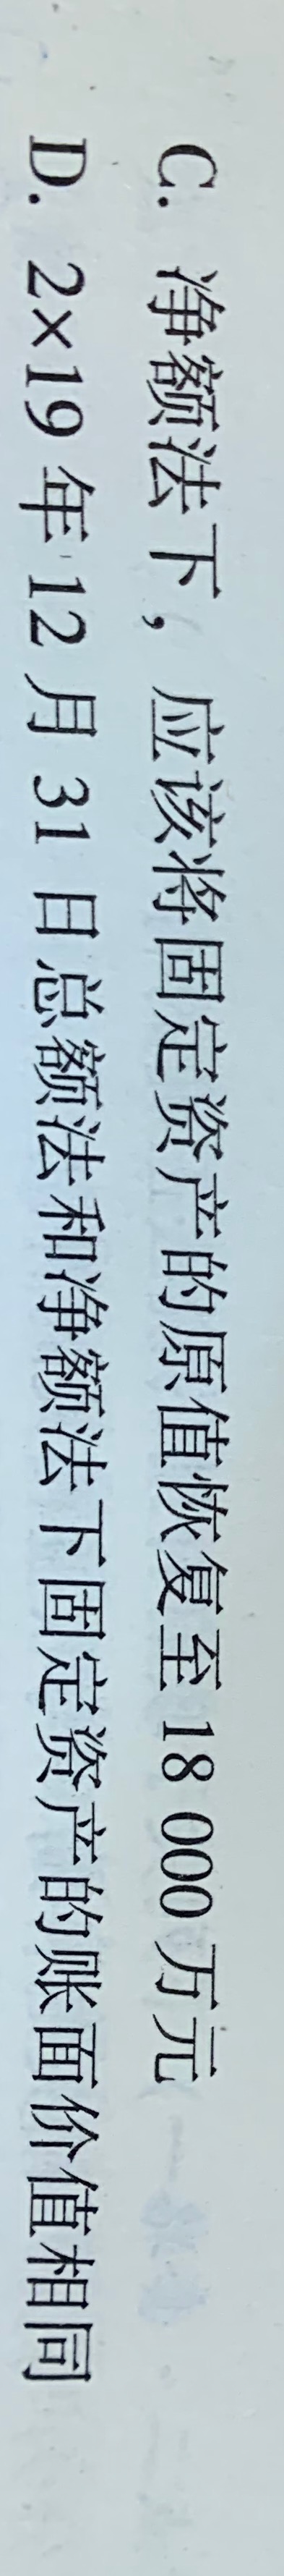 C. 净额法下，应该将固定资产的原值恢复至 18 000 万元
D. 2×19 年 12 月 31 日总额法和净额法下固定资产的账面价值相同